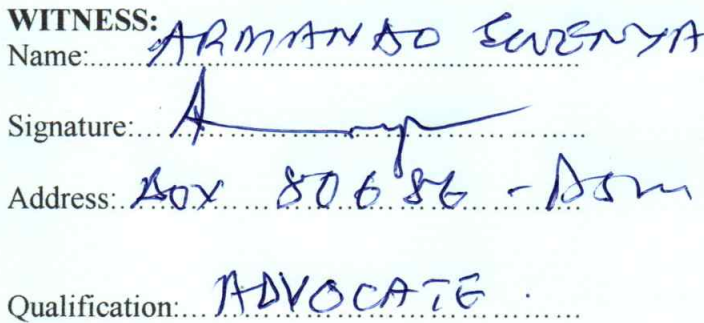 WITNESS:
Name: ARMANDO SWENYA
Signature:
Address: BOX 80686 - DSM
Qualification: ADVOCATE.